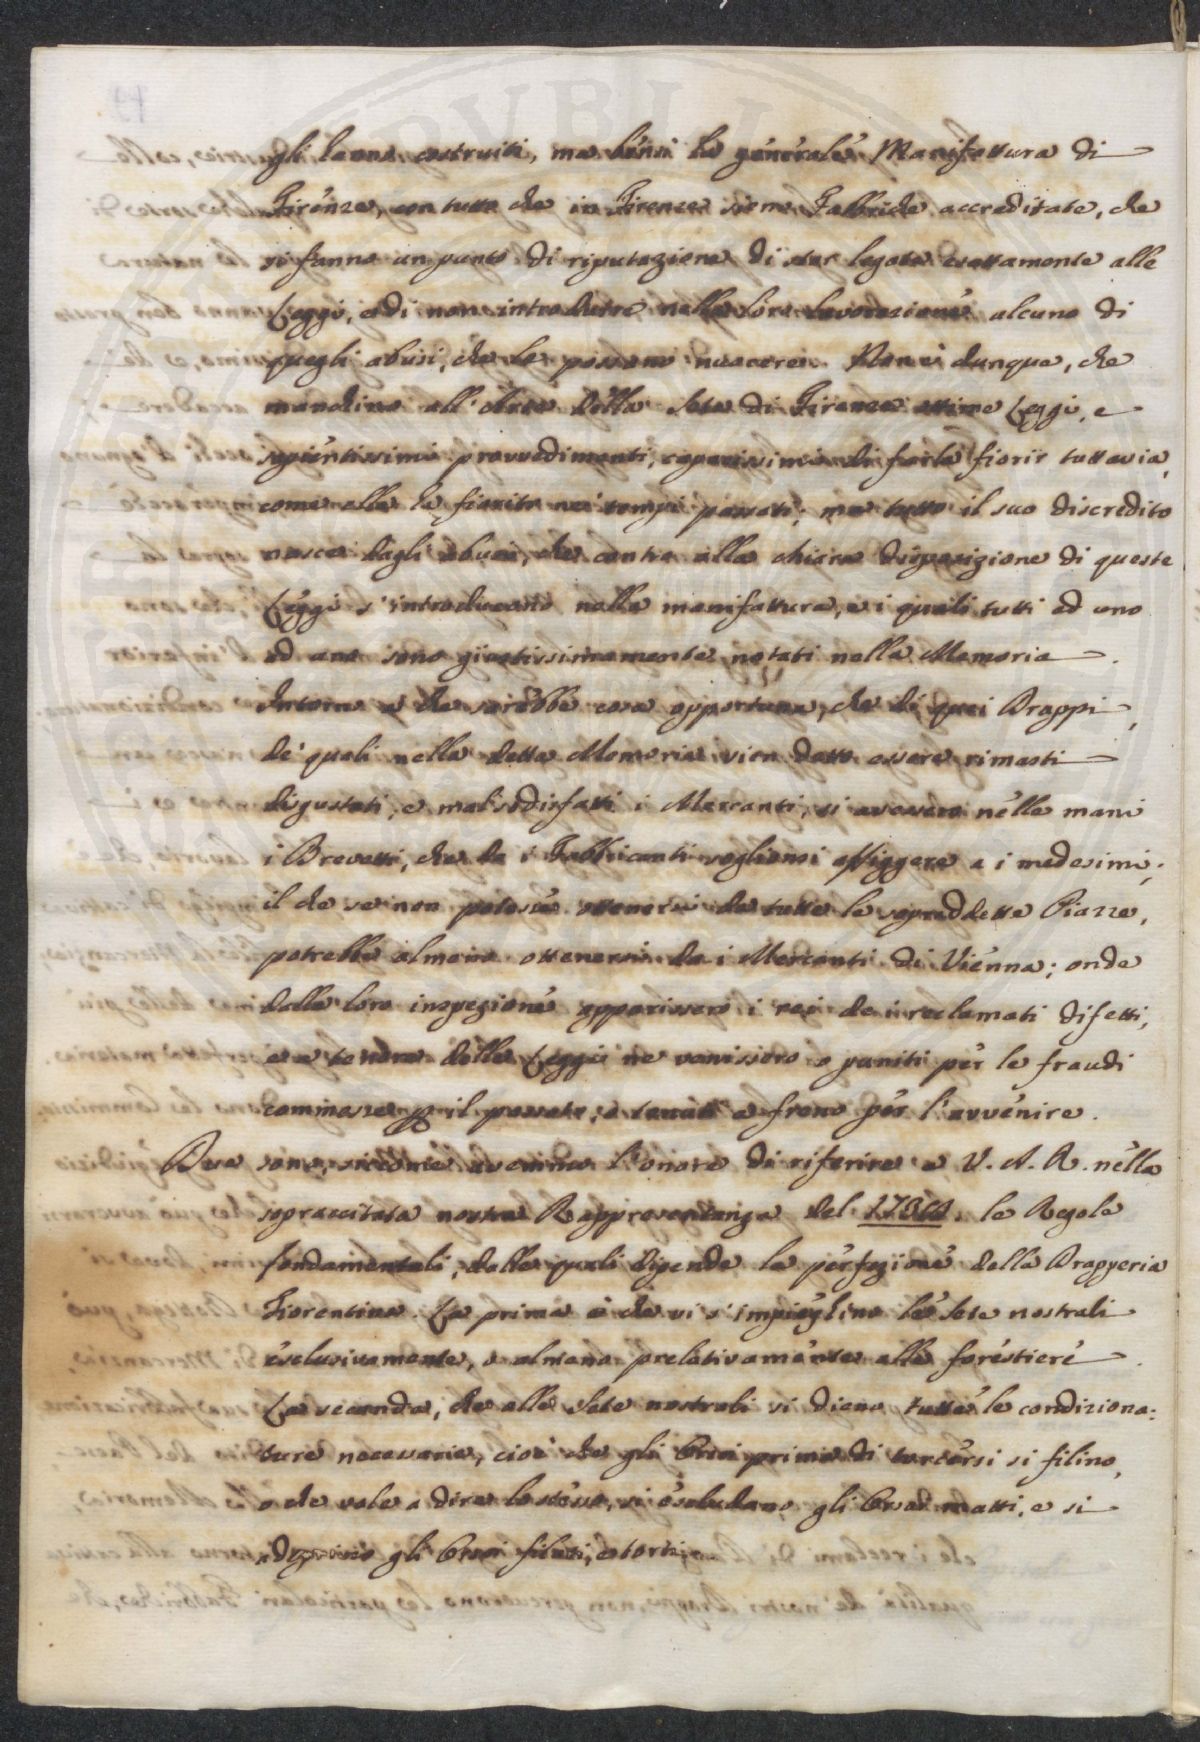 gli hanno costruiti, ma bensì la generale Manifattura di
Firenze, con tutto che in Firenze sieno Fabbriche accreditate, che
si fanno un punto di riputazione di star legate esattamente alle
Leggi, e di non introdurre nella loro lavorazione alcuno di
quegli abusi, che la possono nuocere. Non è dunque, che
manchino all'Arte della Seta di Firenze ottime Leggi, e
sapientissimi provvedimenti, capacissimi di farla fiorir tuttavia,
come ella è fiorita ne' tempi passati; ma tutto il suo discredito
nasce dagli abusi, che contro alla chiara disposizione di queste
Leggi s'introducono nella manifattura, e i quali tutti ad uno
ad uno sono giustissimamente notati nella Memoria.
Intorno a che sarebbe cosa opportuna, che di quei Drappi,
de' quali nella detta Memoria vien detto essere rimasti
disgustati, e mal sodisfatti i Mercanti, si avessero nelle mani
i Brevetti, che da i Fabbricanti soglionsi affiggere a i medesimi;
il che se non potesse ottenersi da tutte le sopraddette Piazze,
potrebbe almeno ottenersi da i Mercanti di Vienna; onde
dalla loro inspezione apparissero i rei de i reclamati difetti,
e a tenore delle Leggi ne venissero o puniti per le fraudi
commesse p il passato, o tenuti a freno per l'avvenire.
Due sono, siccome avemmo l'onore di riferire a V. A. R. nella
sopraccitata nostra Rappresentanza del le Regole
fondamentali, dalle quali dipende la perfezione della Drapperia
Fiorentina. La prima è che vi s'impieghino le Sete nostrali
esclusivamente, o almeno prelativamente alle forestiere.
La seconda, che alle Sete nostrali si dieno tutte le condiziona:
ture necessarie, cioè che gli Orsoi prima di torcersi si filino,
o che vale a dire lo stesso, si escludano gli Orsoi matti, e si
adoprino gli Orsoi filati, e torti;